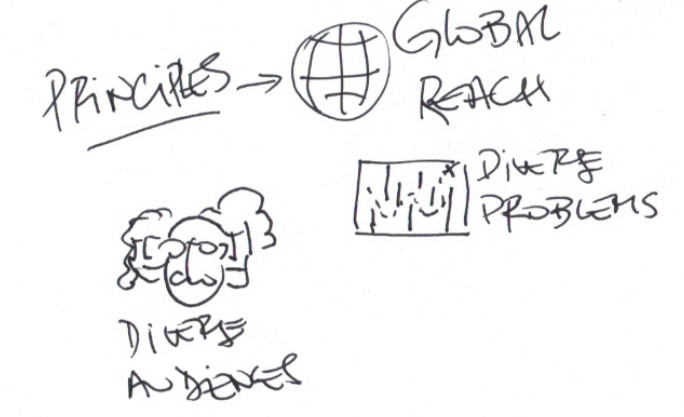 PRINCIPLES → GLOBAL
REACH
DIVERSE
PROBLEMS
DIVERSE
AUDIENCES